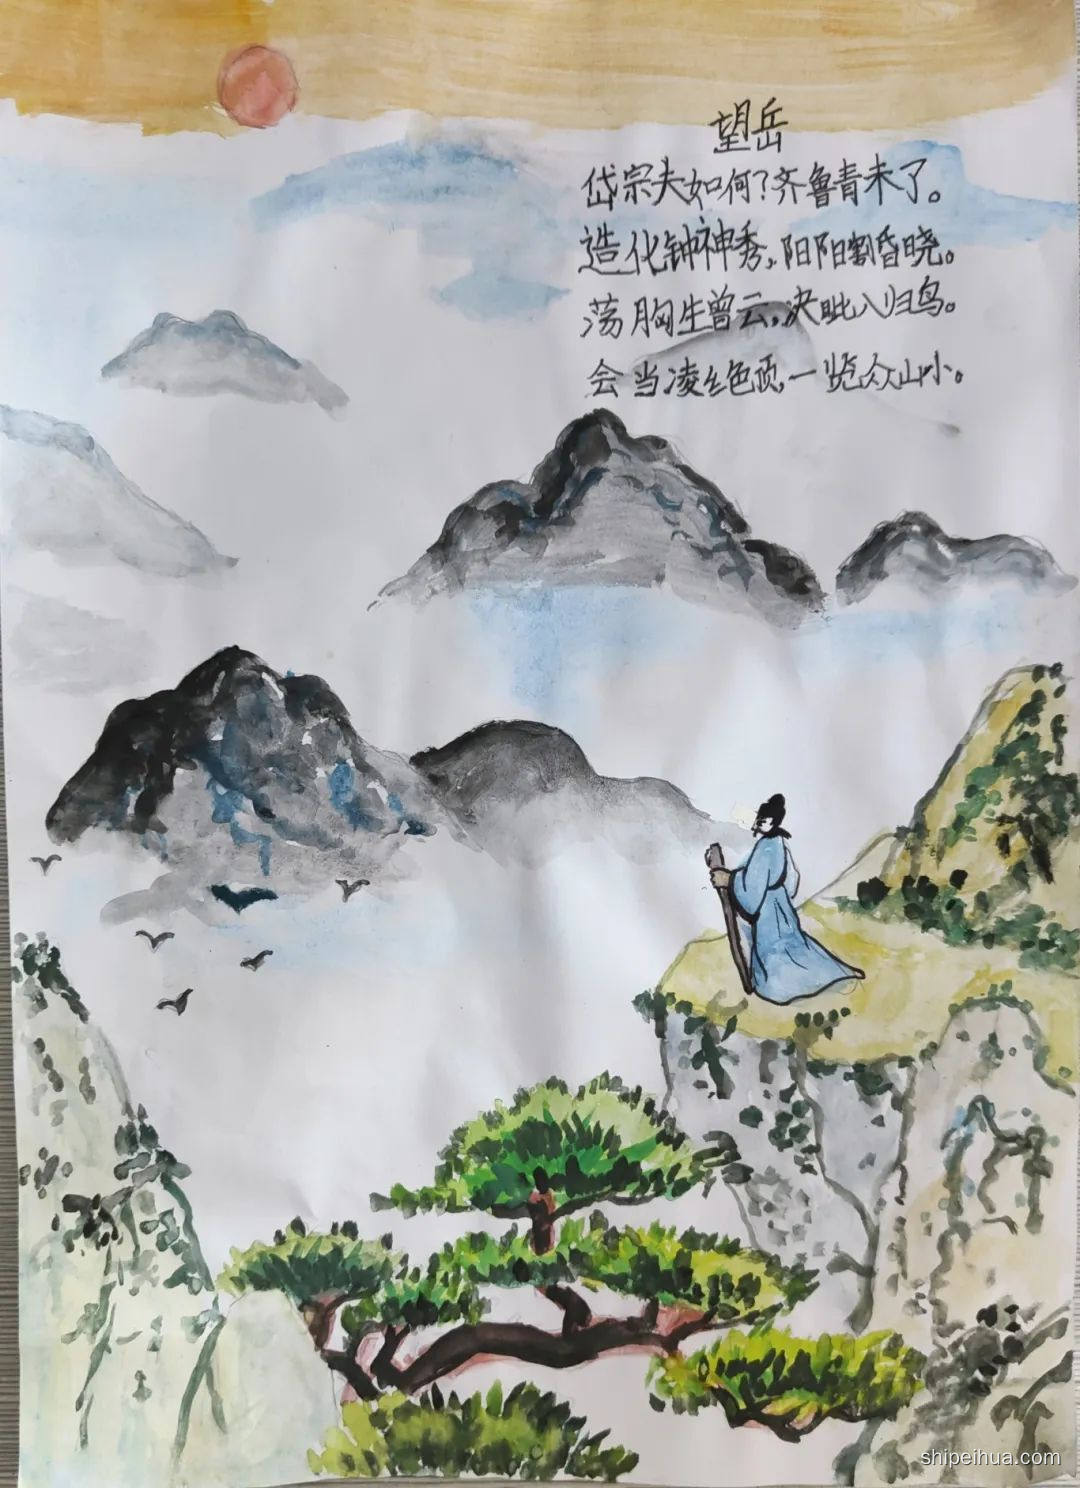 望岳
岱宗夫如何？齐鲁青未了。
造化钟神秀，阳阳割昏晓。
荡胸生曾云，决眦入归鸟。
会当凌绝顶，一览众山小。
shipeihua.com